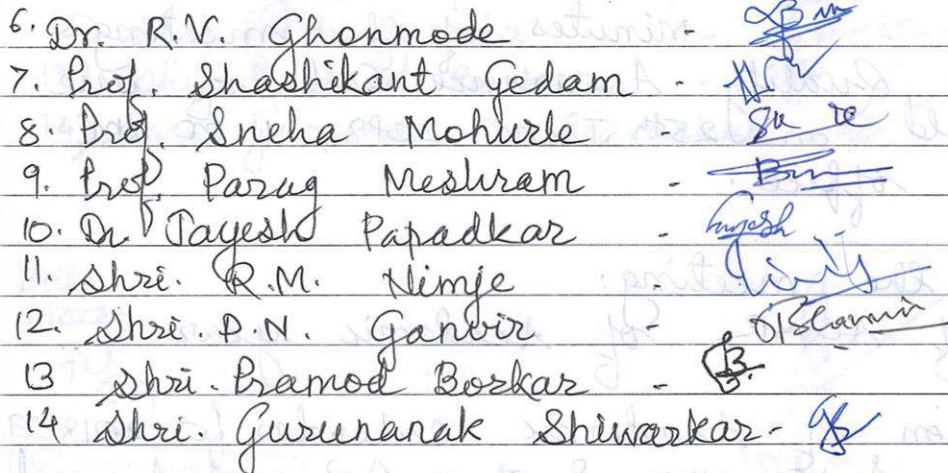 6. Dr. R.V. Ghonmode -
7. Prof. Shashikant Gedam -
8. Prof. Sneha Mohurle -
9. Prof. Parag Meshram -
10. Dr Jayesh Papadkar -
11. Shri. R.M. Nimje -
12. Shri P.N. Ganvir -
13 Shri. Pramod Borkar -
14 Shri. Gurunanak Shiwarkar -